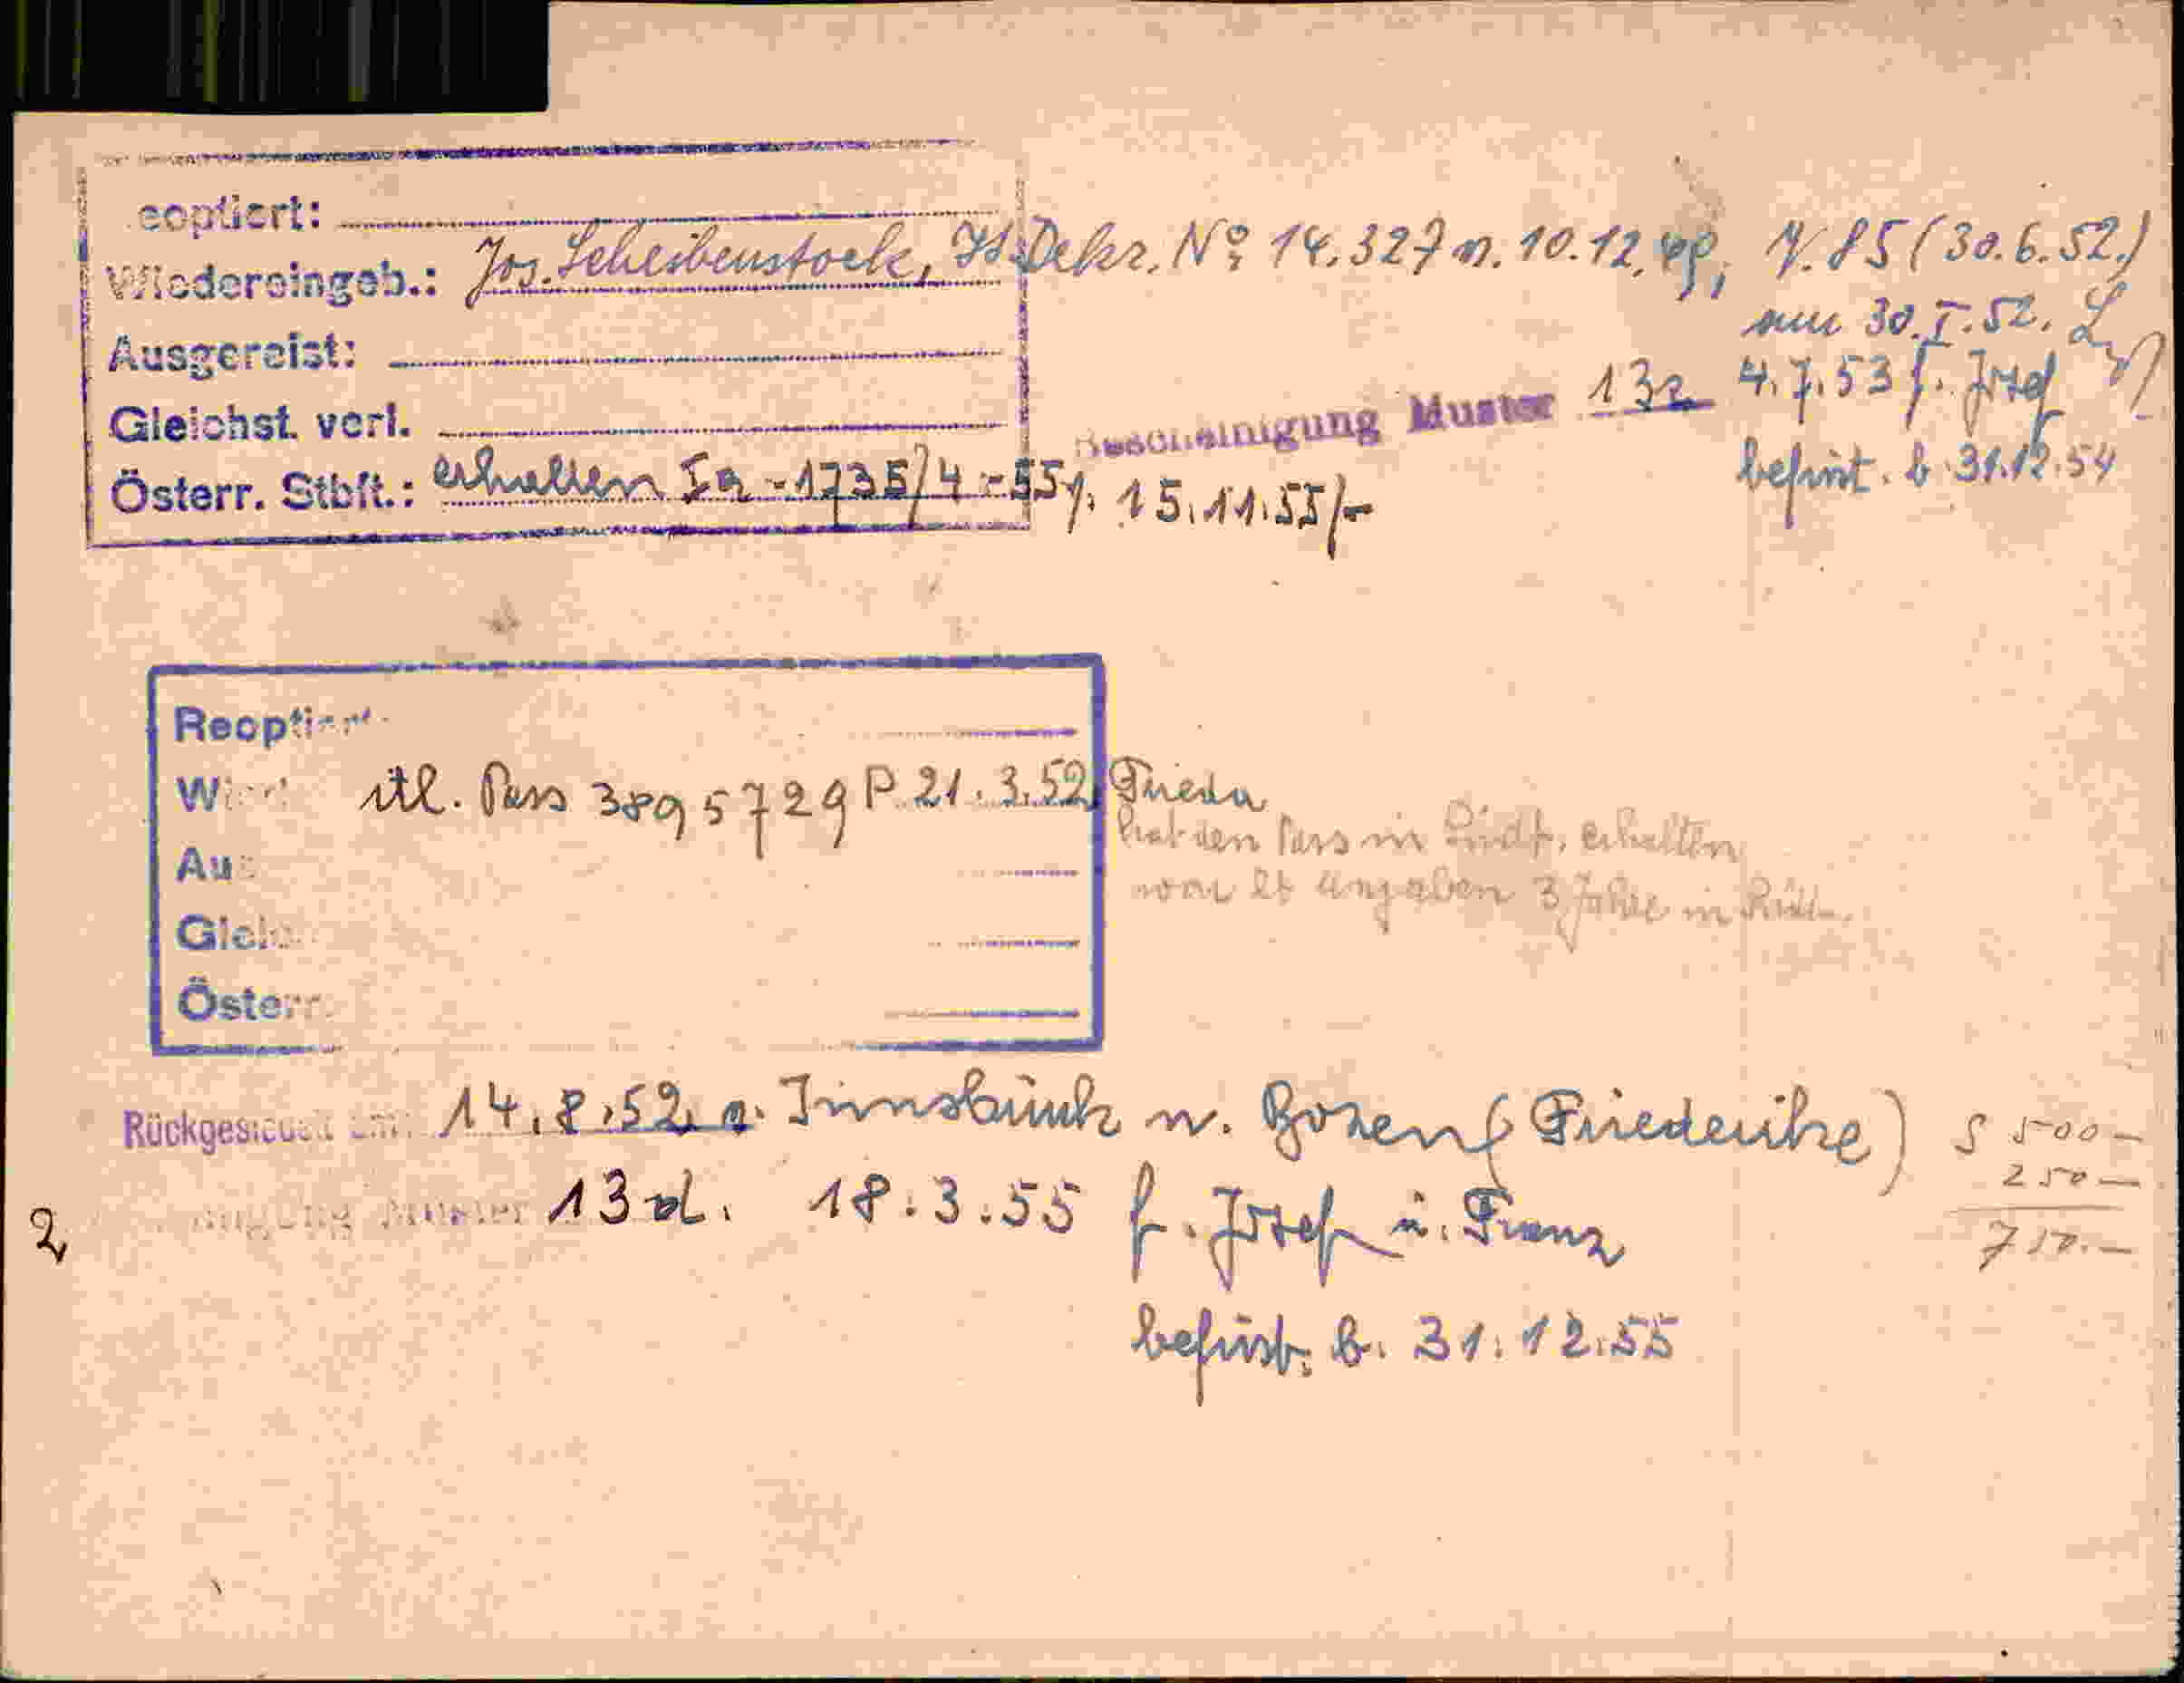 eoptiert:
Wiedereingeb.: Jos. Scheibenstock, It. Dekr. No 14.327 v. 10.12.49, N. 85 (30.6.52)
am 30.I.52.
Ausgereist:
Bescheinigung Muster 13a 4.7.53 f. Josef
Gleichst. verl.
befrist. b. 31.12.54
Österr. Stbft.: erhalten Ia-1735/4-55 v. 15.11.55/-
Reoptiert
Wied itl. Pass 3895729 P 21.3.52 Frieda
hat den Pass in Südt. erhalten
Aus
war lt Angaben 3 Jahre in
Gleich
Österr.
Rückgesiedelt am: 14.8.52 v. Innsbruck n. Bozen (Friederike) S 500-
250-
13 d. 18.3.55 f. Josef u. Franz
750.-
2
befrist. b. 31.12.55